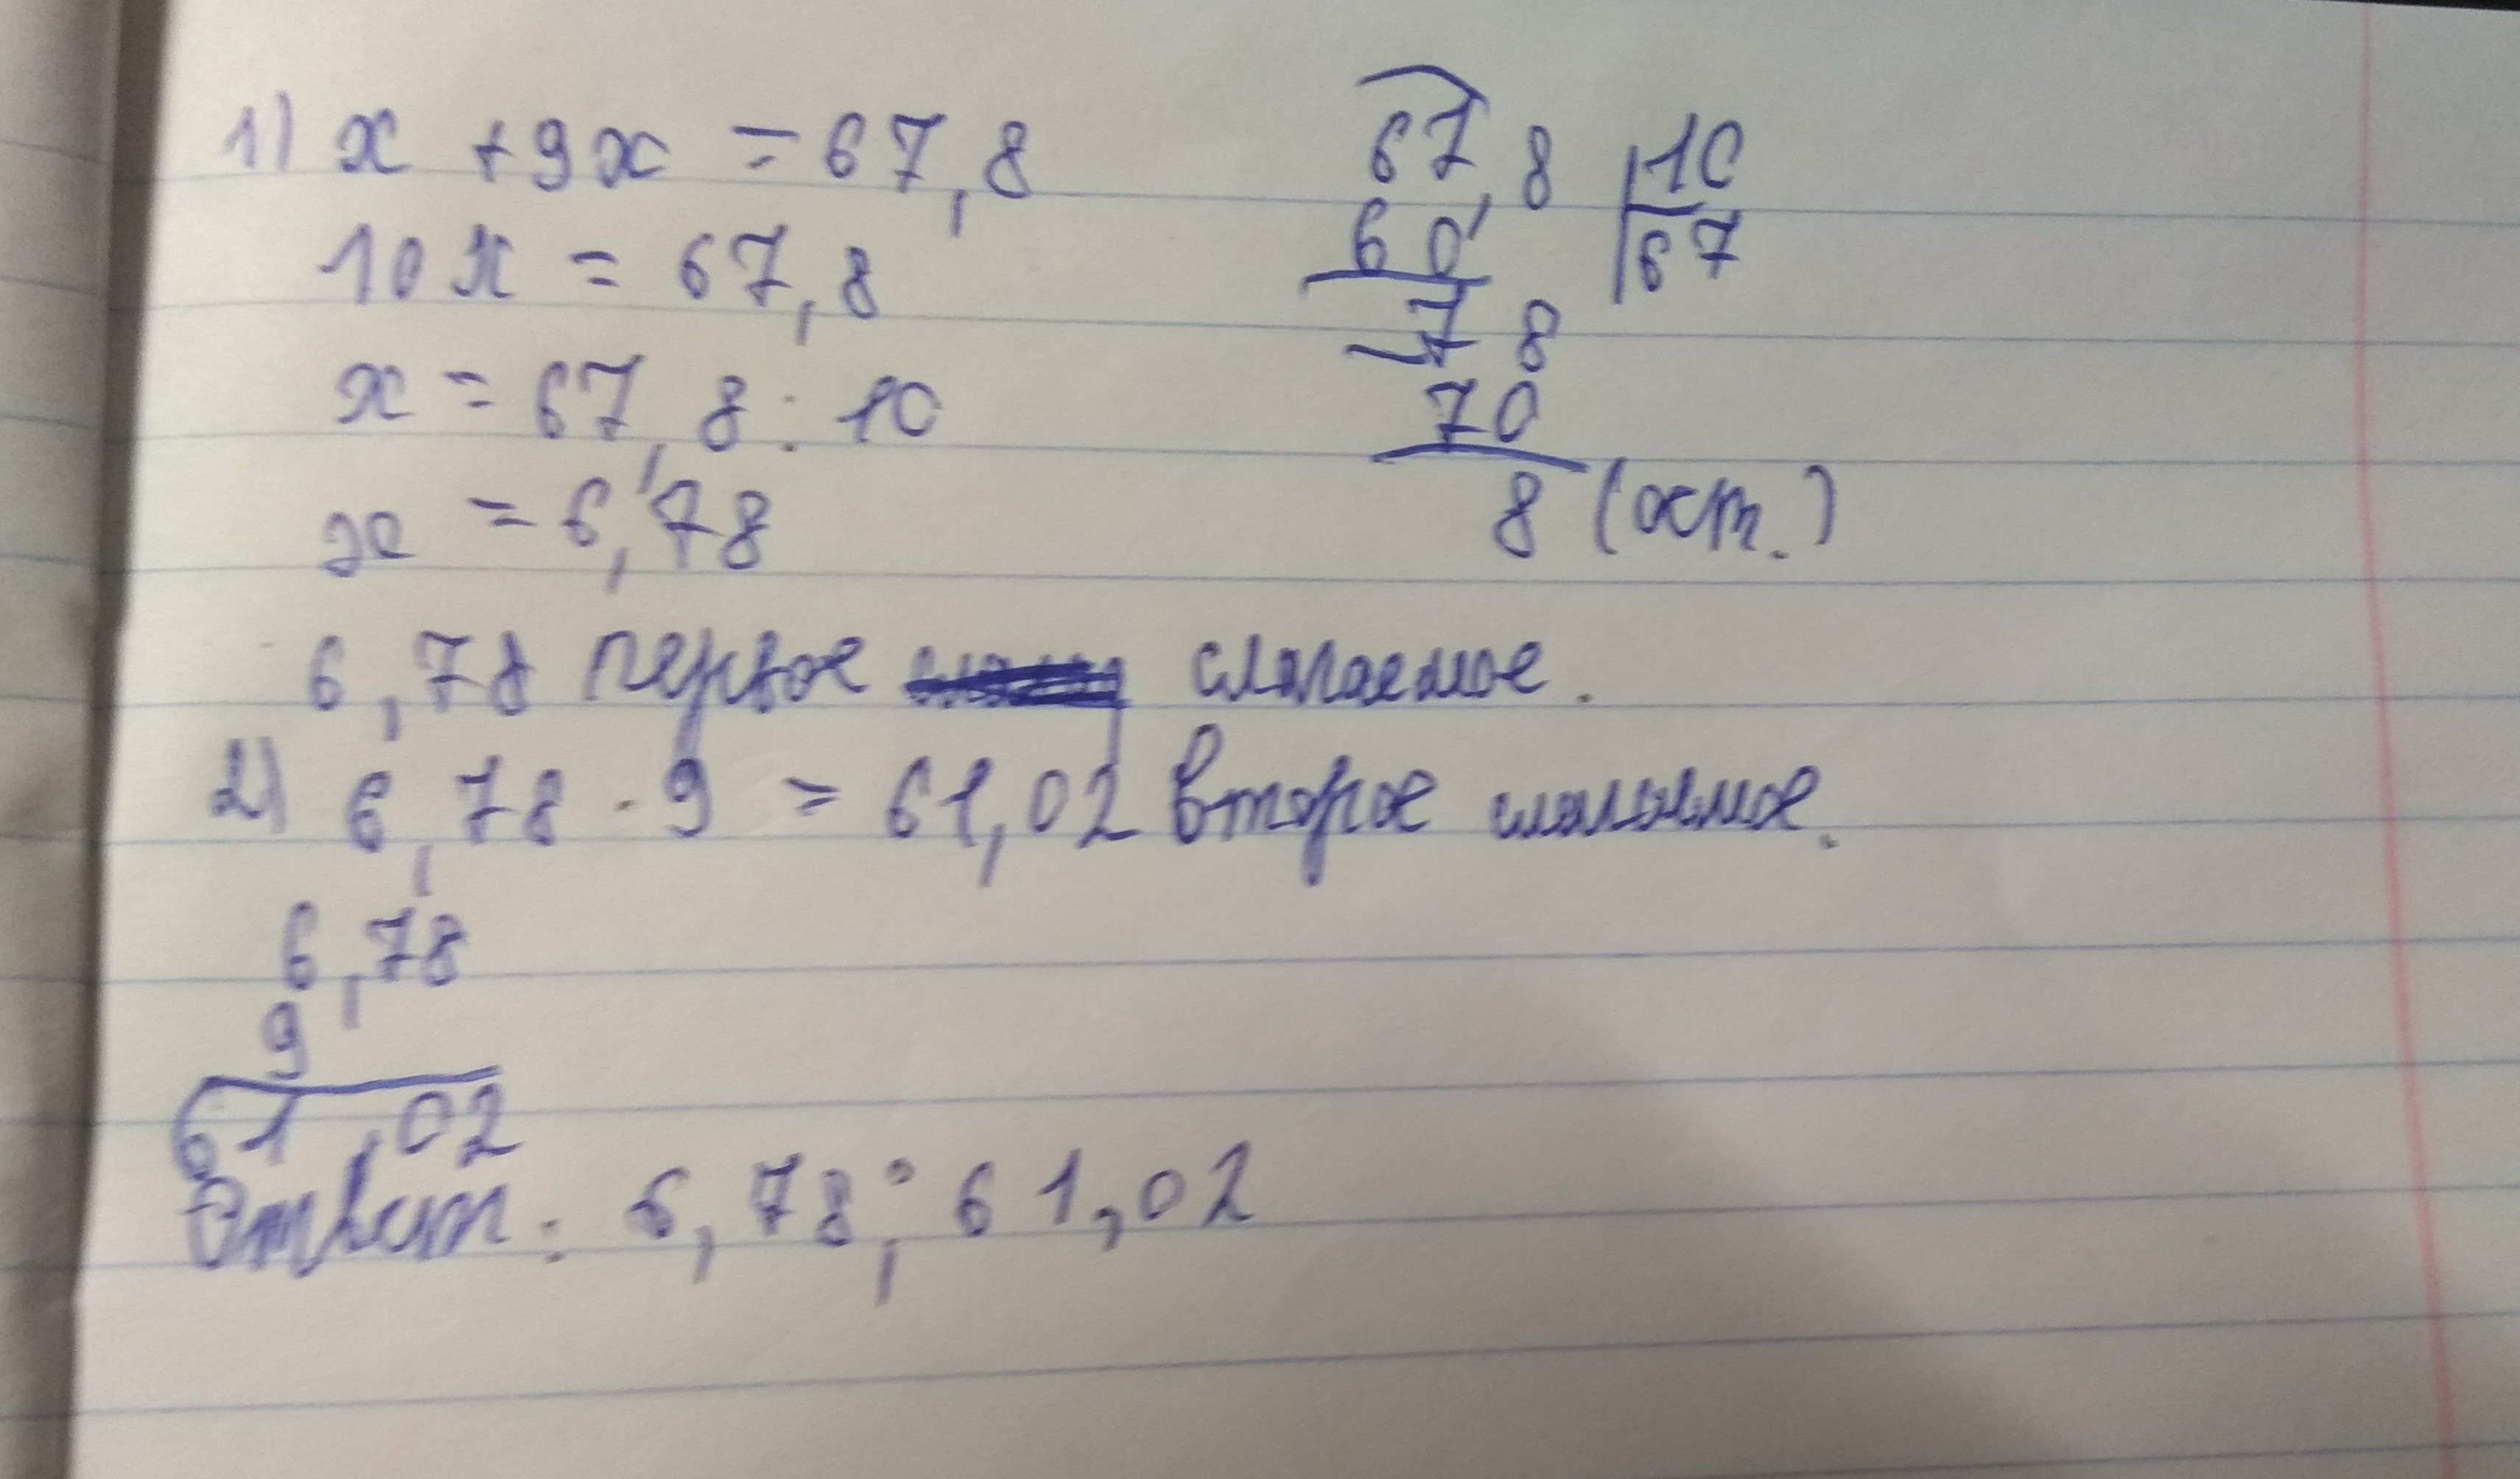 1) x + 9x = 67,8
10x = 67,8
x = 67,8 : 10
x = 6,78
67,8 | 10
60 | 67
78
70
8 (ост.)
6,78 первое слагаемое.
2) 6,78 · 9 = 61,02 второе слагаемое.
6,78
9
61,02
Ответ: 6,78; 61,02